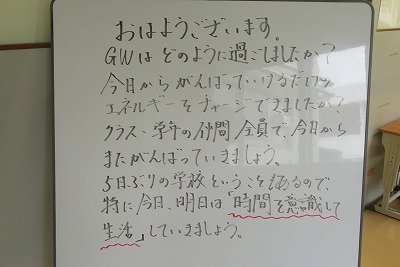 おはようございます。
GWはどのように過ごしましたか?
今日からがんばっていけるだけの
エネルギーをチャージできましたか?
クラス・学年の仲間全員で、今日から
またがんばっていきましょう。
5日ぶりの学校ということもあるので、
特に今日、明日は「時間を意識して
生活」していきましょう。